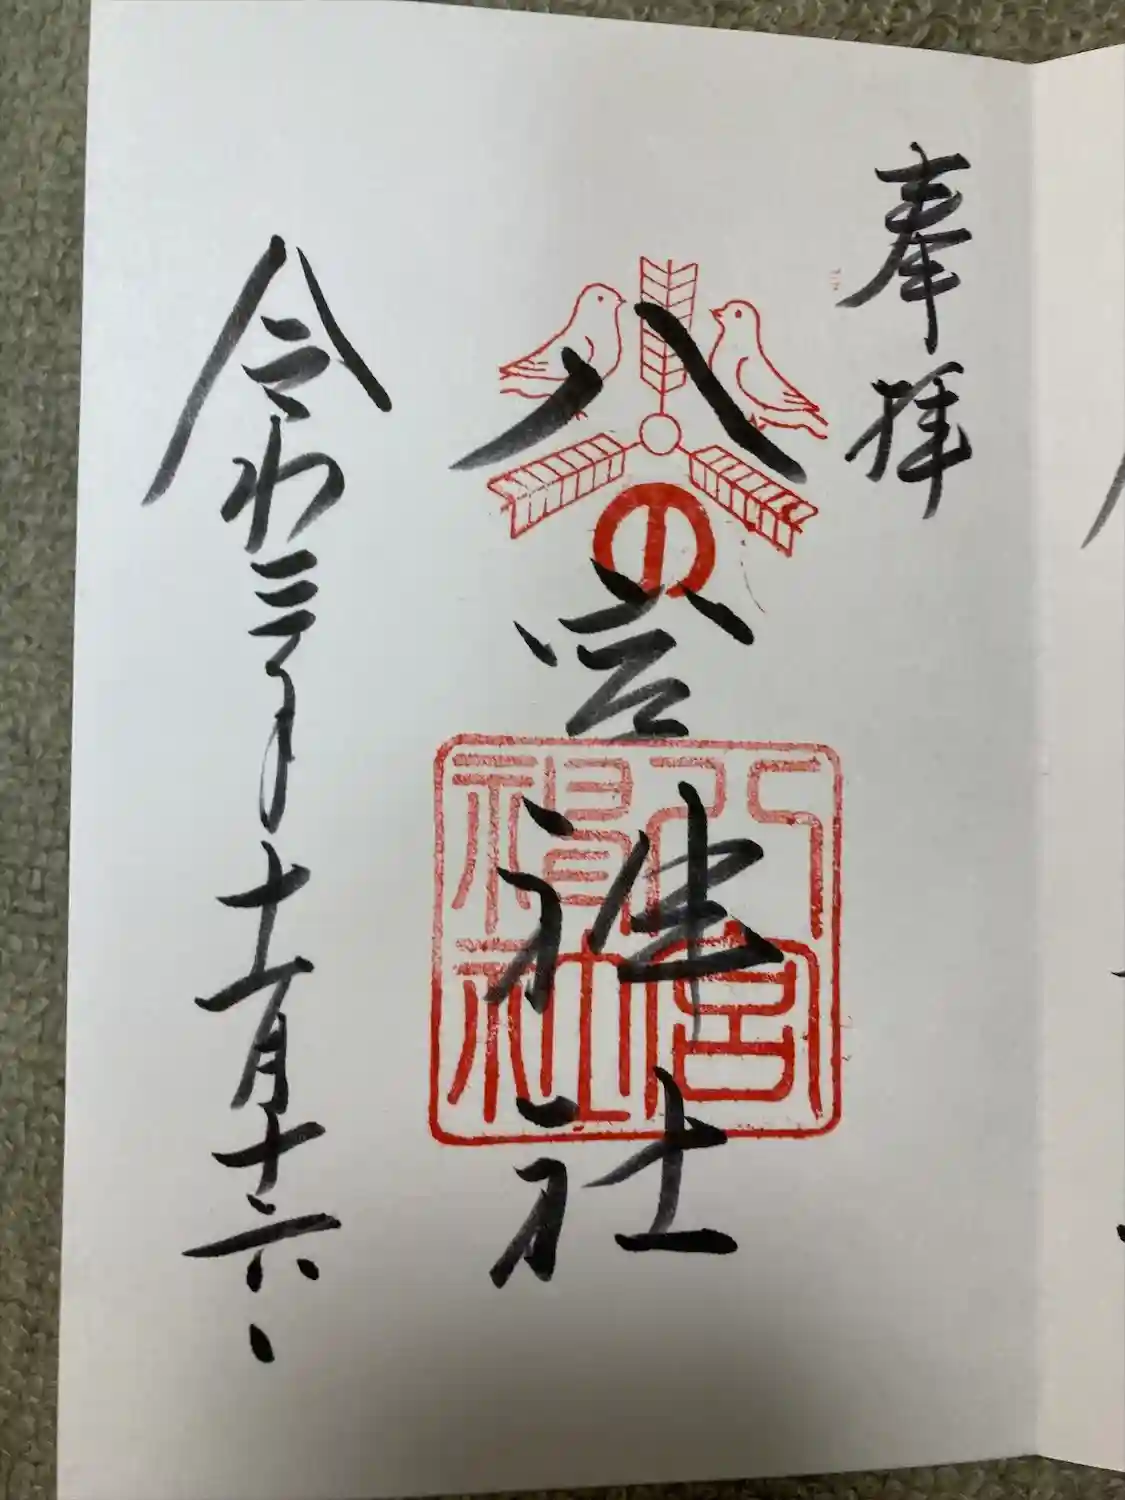 奉拝
八宮神社
八宮神社
令和三年十一月十六日